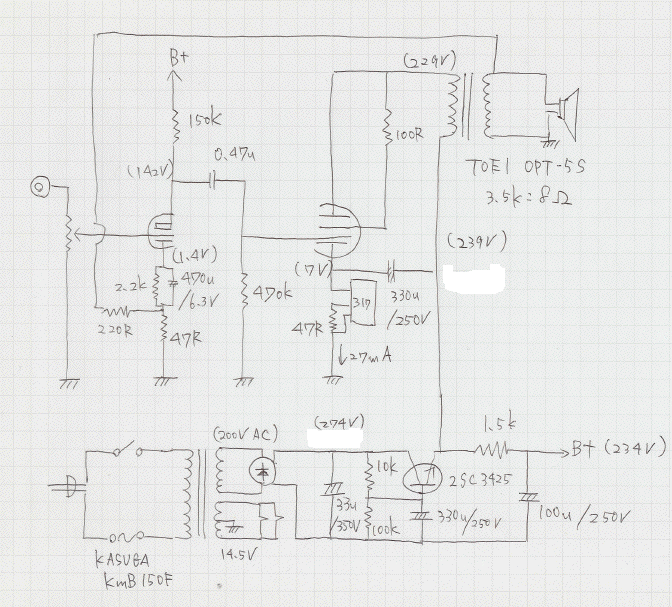 (229V)
B+
150k
100R
0.47u
(142V)
TOEI OPT-5S
3.5k:8Ω
(1.4V)
(239V)
(17V)
2.2k
470u
/6.3V
470k
317
330u
/250V
220R
47R
47R
↓27mA
(200V AC)
(274V)
1.5k
B+ (234V)
10k
2SC3425
33u
/350V
100k
330u/250V
100u/250V
14.5V
KASUGA
KmB150F